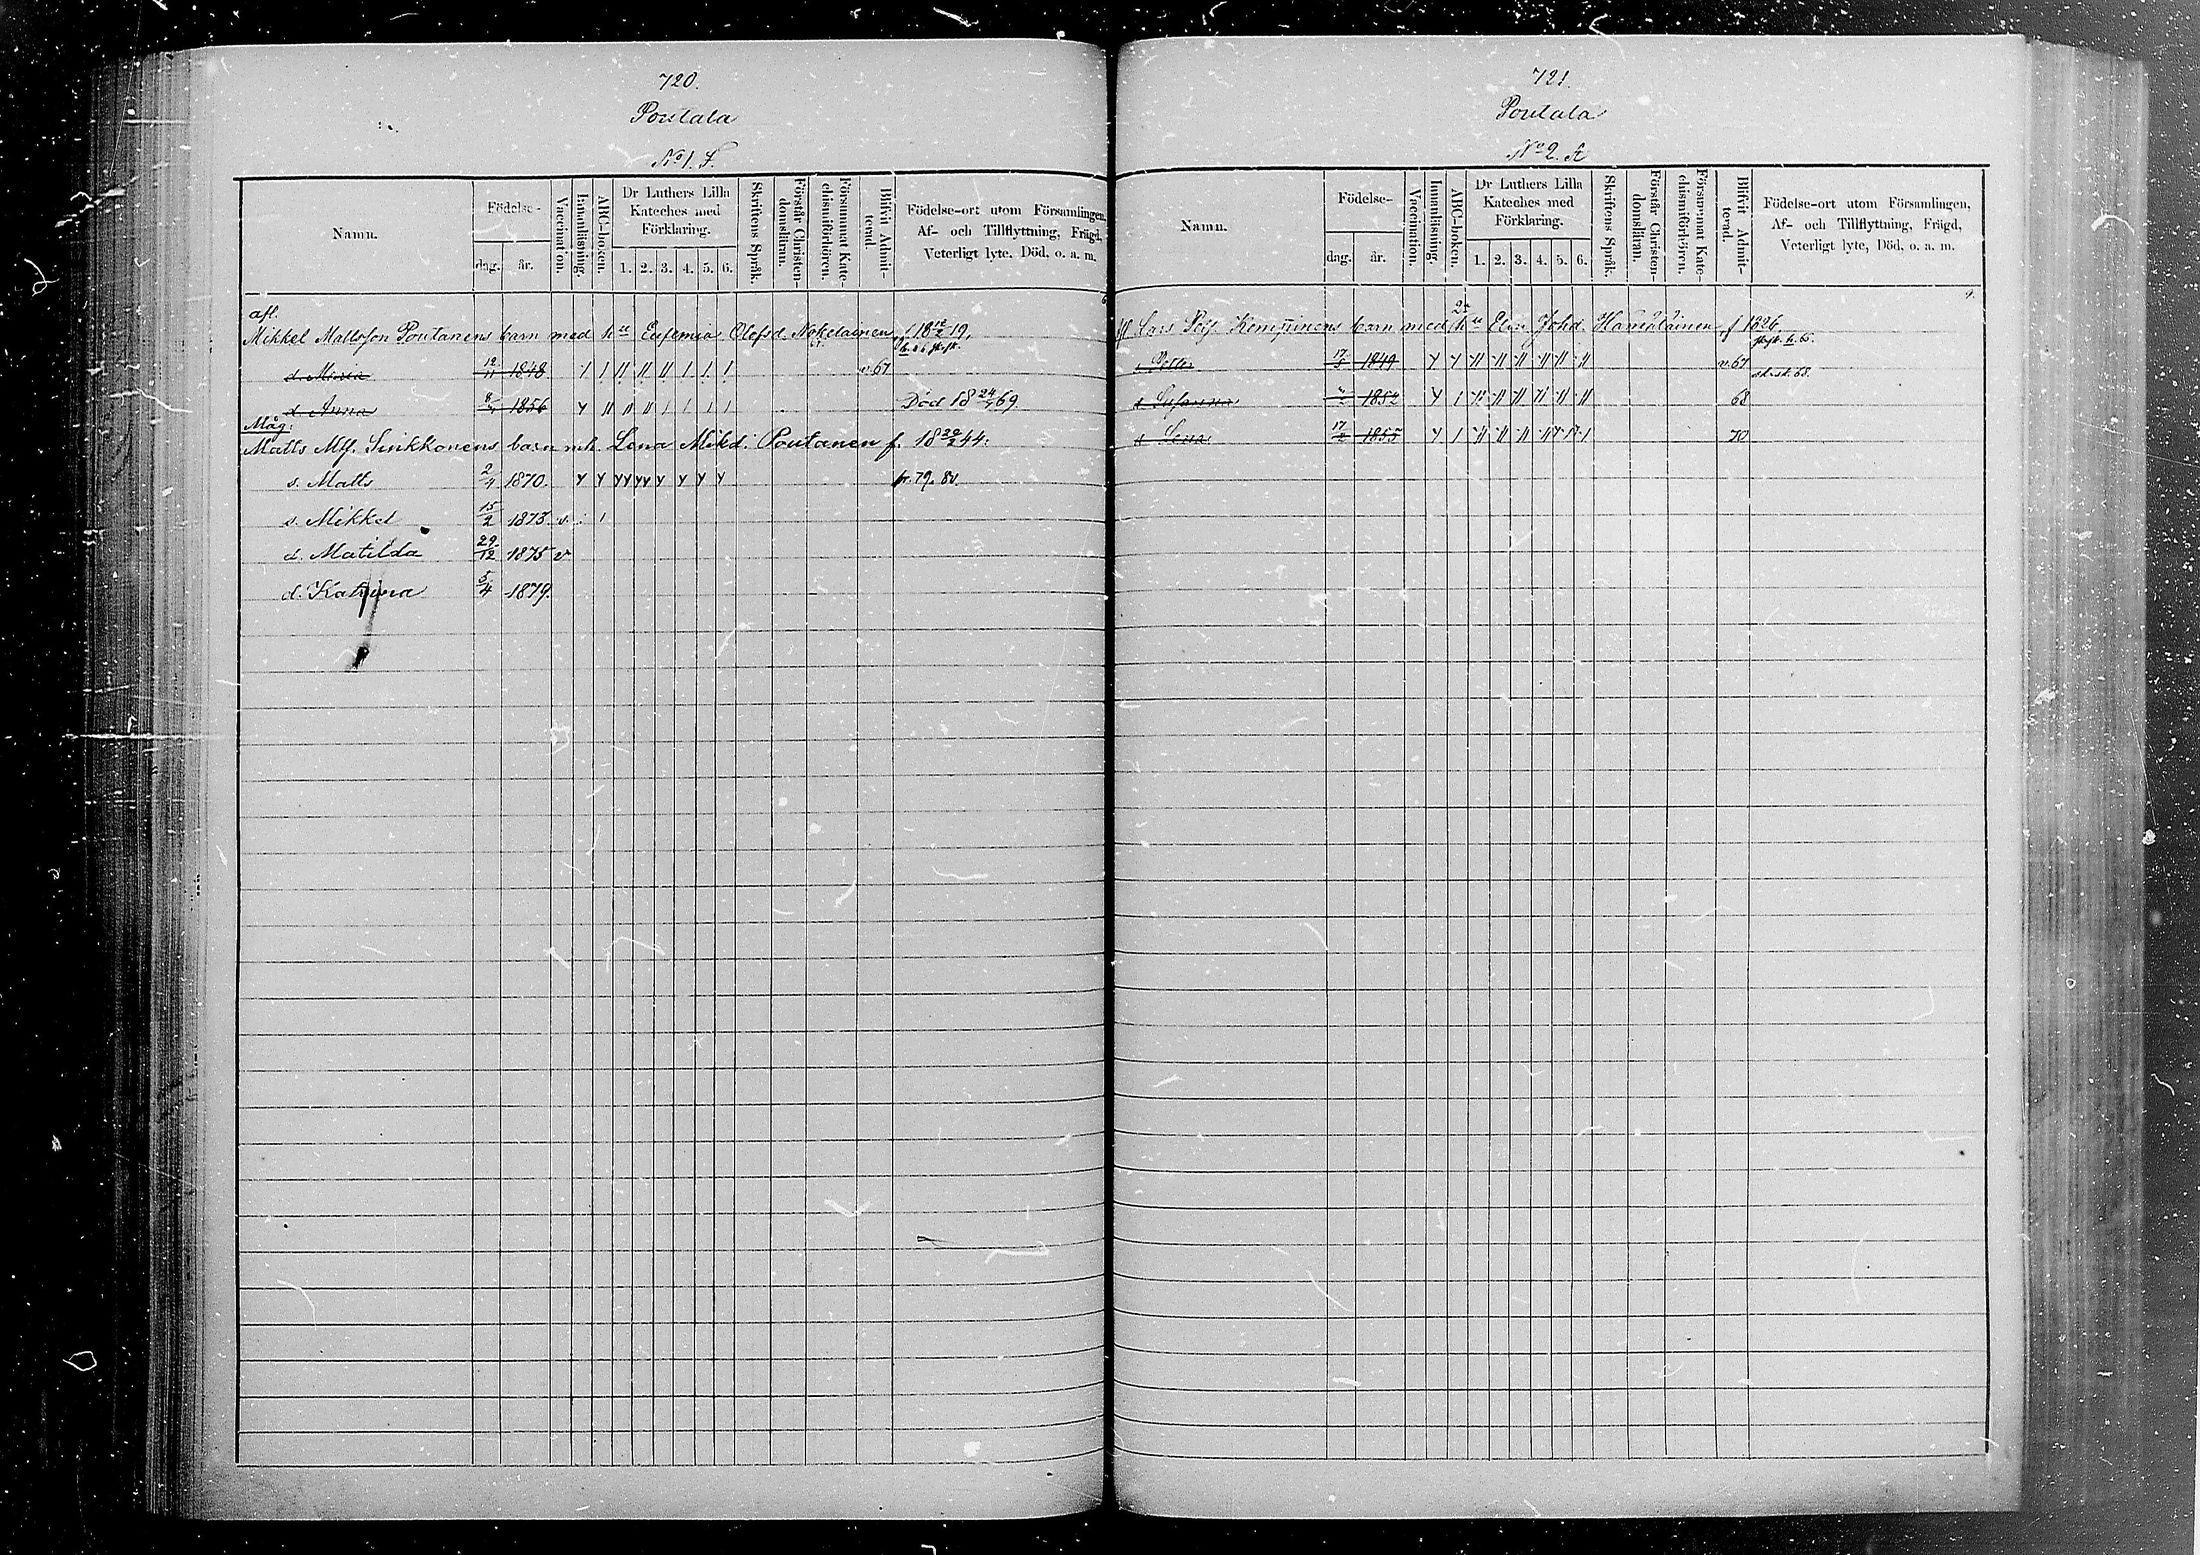 720.
Poutala
No 1. F.
Namn.
Födelse-
dag.
år.
Vaccination.
Innanläsning.
ABC-boken.
Dr Luthers Lilla
Kateches med
Förklaring.
1. 2. 3. 4. 5. 6.
Skriftens Språk.
Förstår Christen-
domsläran.
Försummat Kate-
chismiförhören.
Blifvit Admit-
terad.
Födelse-ort utom Församlingen,
Af- och Tillflyttning, Frägd,
Veterligt lyte, Död, o. a. m.
afl.
Mikkel Mattsson Poutanens barn med hu Eufemia Olefsd. Nokelainen f. 18 12/2 19.
d. 12/11 1848 v. 67
d. Anna 1856 Död 18 24/7 69
Måg:
Matts Mtf. Sinkkonens barn m.h. Lena Mikd: Poutanen f. 18 20/2 44.
s. Matts 2/4 1870. fr. 79. 80.
s. Mikkel 15/2 1873. v.
d. Matilda 29/12 1875 v
d. Katrina 5/4 1879.
721.
Poutala
No 2. A
Namn.
Födelse-
dag.
år.
Vaccination.
Innanläsning.
ABC-boken.
Dr Luthers Lilla
Kateches med
Förklaring.
1. 2. 3. 4. 5. 6.
Skriftens Språk.
Förstår Christen-
domsläran.
Försummat Kate-
chismiförhören.
Blifvit Admit-
terad.
Födelse-ort utom Församlingen,
Af- och Tillflyttning, Frägd,
Veterligt lyte, Död, o. a. m.
Lars Kemppinens barn med 2a hu Elin Johd. Hämäläinen f 1826.
s. Petter 17/5 1849 v. 67
d. Susanna 1852 68
d. Lena 17/2 1855 70